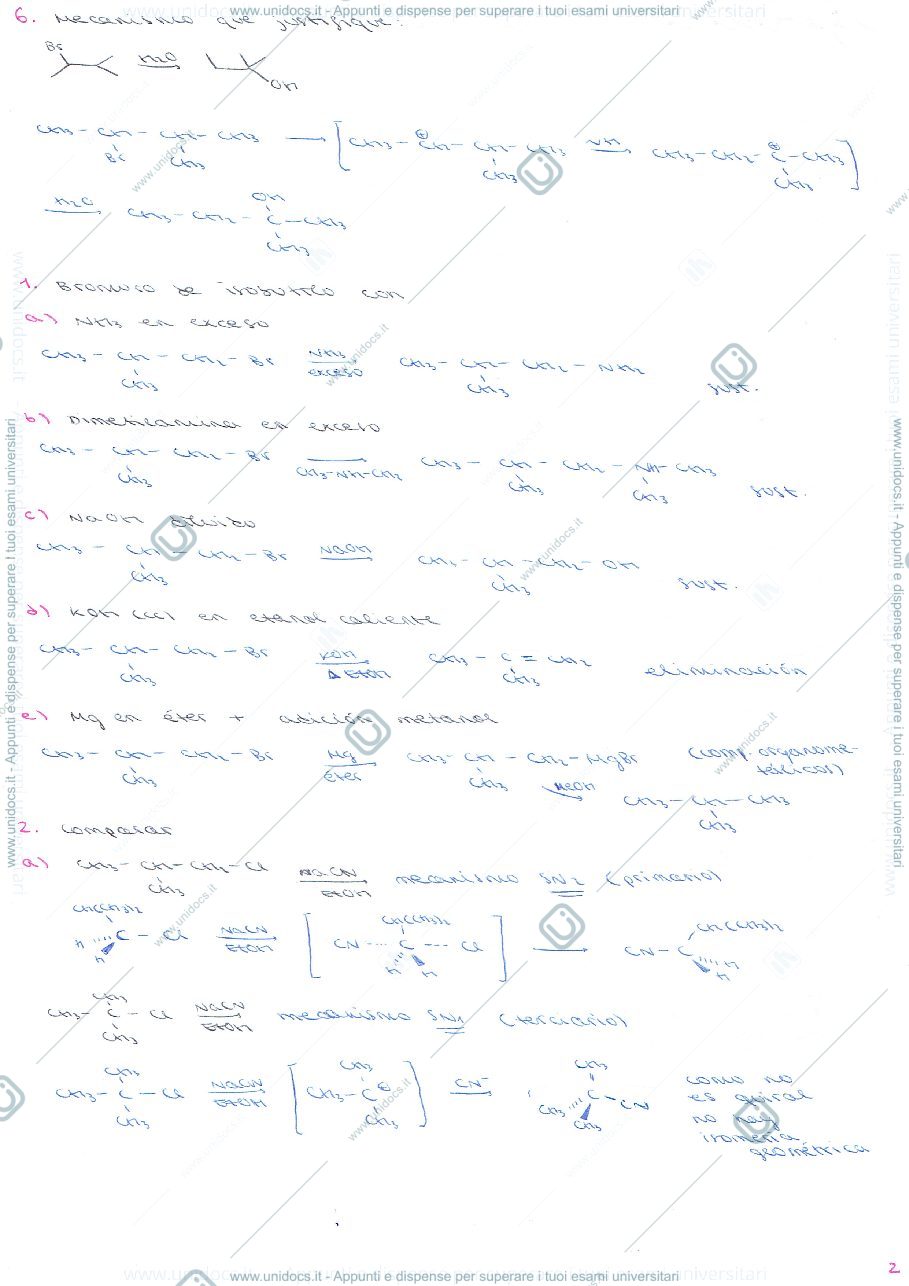 www.unidocs.it - Appunti e dispense per superare i tuoi esami universitari
6. Mecanismo que justifique:
Br
H2O
OH
CH3 - CH - CH - CH3 → [ CH3 - CH - CH - CH3 → CH3 - CH2 - C - CH3 ]
Br CH3 ⊕ CH3 ⊕ CH3
H2O CH3 - CH2 - C - CH3
OH
CH3
1. Bromuro de isobutilo con
a) NH3 en exceso
CH3 - CH - CH2 - Br NH3 exceso CH3 - CH - CH2 - NH2
CH3 CH3 sust.
b) Dimetilamina en exceso
CH3 - CH - CH2 - Br CH3-NH-CH3 CH3 - CH - CH2 - NH - CH3
CH3 CH3 CH3 sust.
c) NaOH diluido
CH3 - CH - CH2 - Br NaOH CH3 - CH - CH2 - OH
CH3 CH3 sust.
d) KOH (cc) en etanol caliente
CH3 - CH - CH2 - Br KOH Δ EtOH CH3 - C = CH2 eliminación
CH3 CH3
e) Mg en éter + adición metanol
CH3 - CH - CH2 - Br Mg éter CH3 - CH - CH2 - MgBr (comp. organome-
tálicos)
CH3 CH3 MeOH CH3 - CH - CH3
CH3
2. Comparar
a) CH3 - CH - CH2 - Cl NaCN EtOH mecanismo SN2 (primario)
CH3
CH(CH3)2
H C - Cl NaCN EtOH [ CN ···· C --- Cl ] → CN - C
H
CH(CH3)2 H H CH(CH3)2 H H
CH3
CH3 - C - Cl NaCN EtOH mecanismo SN1 (terciario)
CH3
CH3 CH3 CH3
CH3 - C - Cl NaCN EtOH [ CH3 - C ⊕ ] CN⁻ → CH3 C - CN
CH3 CH3 CH3
como no
es quiral
no hay
isomería
geométrica
2
www.unidocs.it - Appunti e dispense per superare i tuoi esami universitari